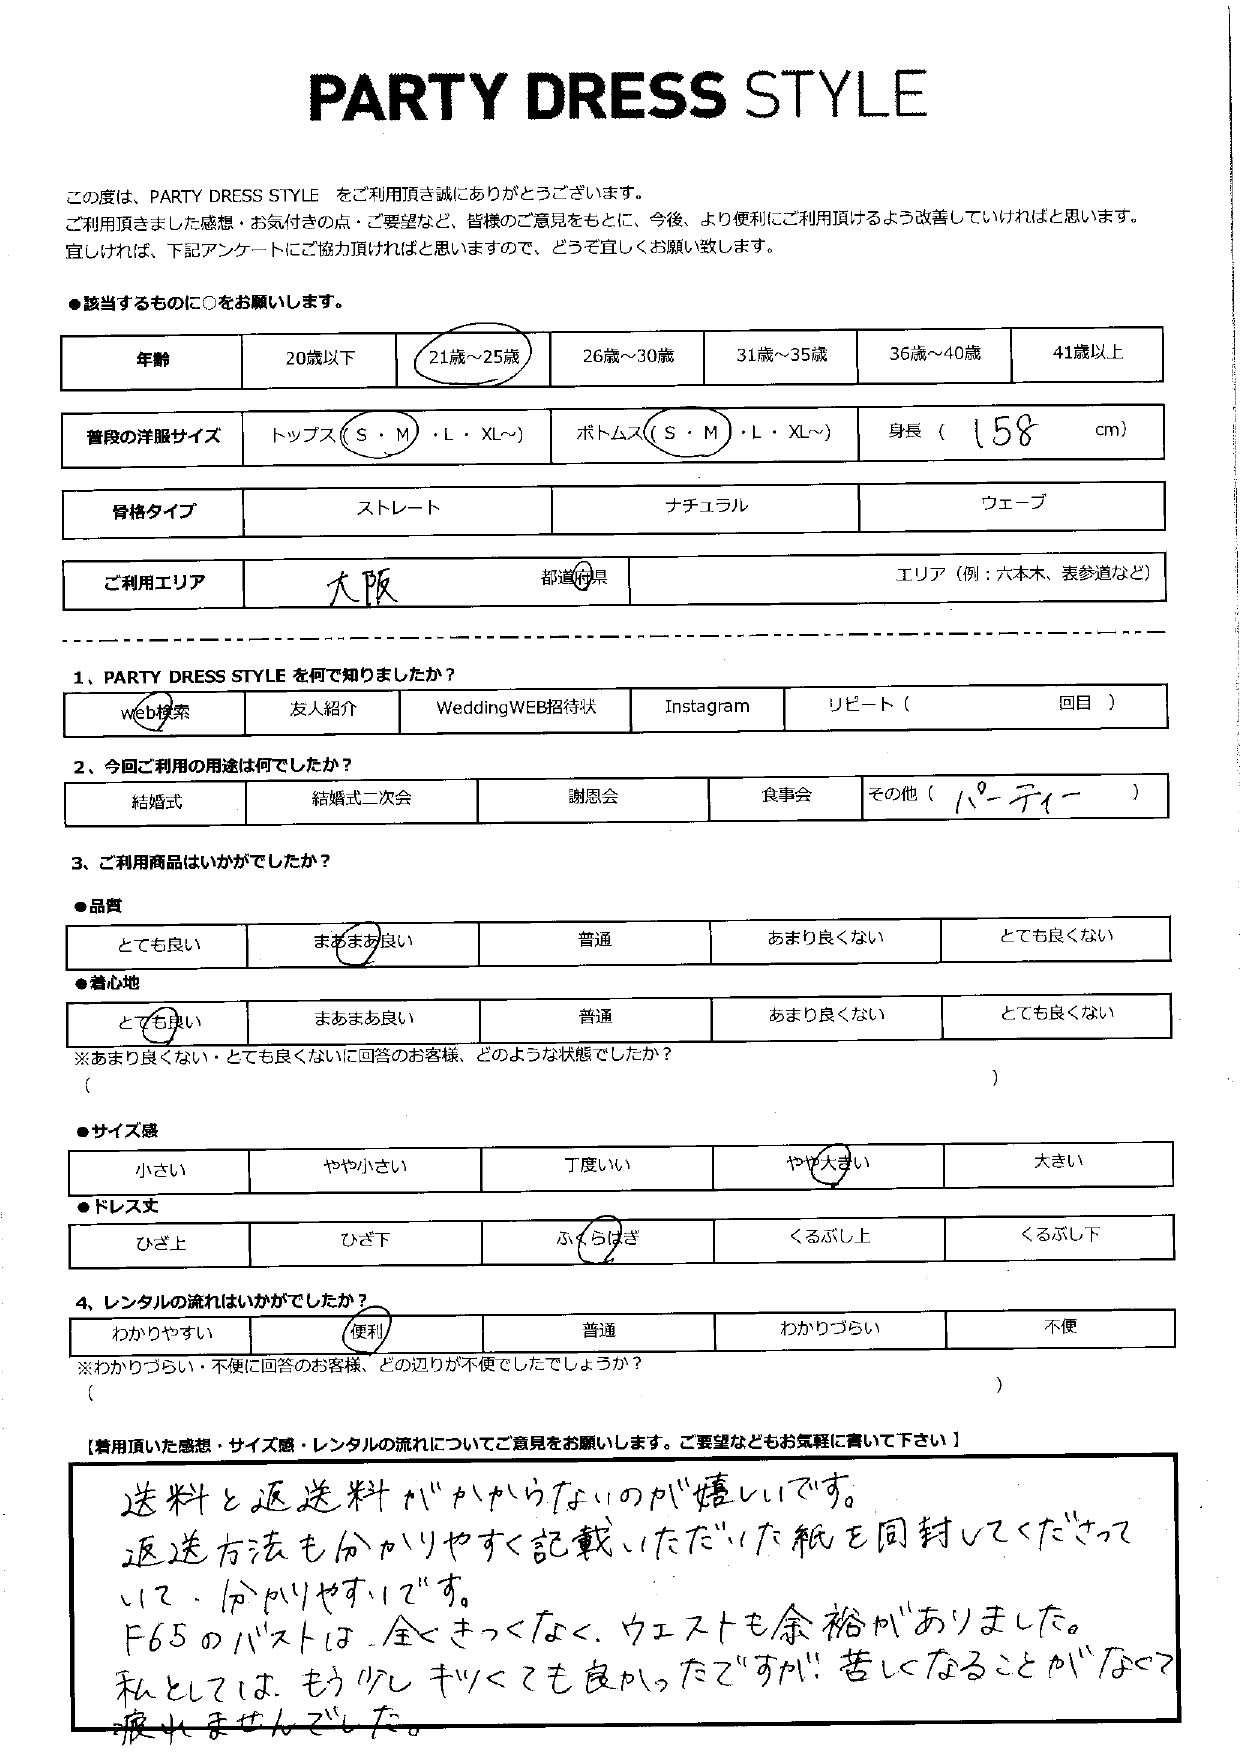 PARTY DRESS STYLE
この度は、PARTY DRESS STYLE をご利用頂き誠にありがとうございます。
ご利用頂きました感想・お気付きの点・ご要望など、皆様のご意見をもとに、今後、より便利にご利用頂けるよう改善していければと思います。
宜しければ、下記アンケートにご協力頂ければと思いますので、どうぞ宜しくお願い致します。
●該当するものに○をお願いします。
年齢 20歳以下 21歳～25歳 26歳～30歳 31歳～35歳 36歳～40歳 41歳以上
普段の洋服サイズ トップス( S ・ M ・L ・ XL～) ボトムス( S ・ M ・L ・ XL～) 身長 ( 158 cm)
骨格タイプ ストレート ナチュラル ウェーブ
ご利用エリア 大阪 都道府県 エリア（例：六本木、表参道など）
1、PARTY DRESS STYLE を何で知りましたか？
web検索 友人紹介 WeddingWEB招待状 Instagram リピート（ 回目 ）
2、今回ご利用の用途は何でしたか？
結婚式 結婚式二次会 謝恩会 食事会 その他（ パーティー ）
3、ご利用商品はいかがでしたか？
●品質
とても良い まあまあ良い 普通 あまり良くない とても良くない
●着心地
とても良い まあまあ良い 普通 あまり良くない とても良くない
※あまり良くない・とても良くないに回答のお客様、どのような状態でしたか？
（ ）
●サイズ感
小さい やや小さい 丁度いい やや大きい 大きい
●ドレス丈
ひざ上 ひざ下 ふくらはぎ くるぶし上 くるぶし下
4、レンタルの流れはいかがでしたか？
わかりやすい 便利 普通 わかりづらい 不便
※わかりづらい・不便に回答のお客様、どの辺りが不便でしたでしょうか？
（ ）
【着用頂いた感想・サイズ感・レンタルの流れについてご意見をお願いします。ご要望などもお気軽に書いて下さい】
送料と返送料がかからないのが嬉しいです。
返送方法も分かりやすく記載いただいた紙を同封してくださって
いて、分かりやすいです。
F65のバストは、全くきつくなく、ウェストも余裕がありました。
私としては、もう少しキツくても良かったですが、苦しくなることがなくて
疲れませんでした。